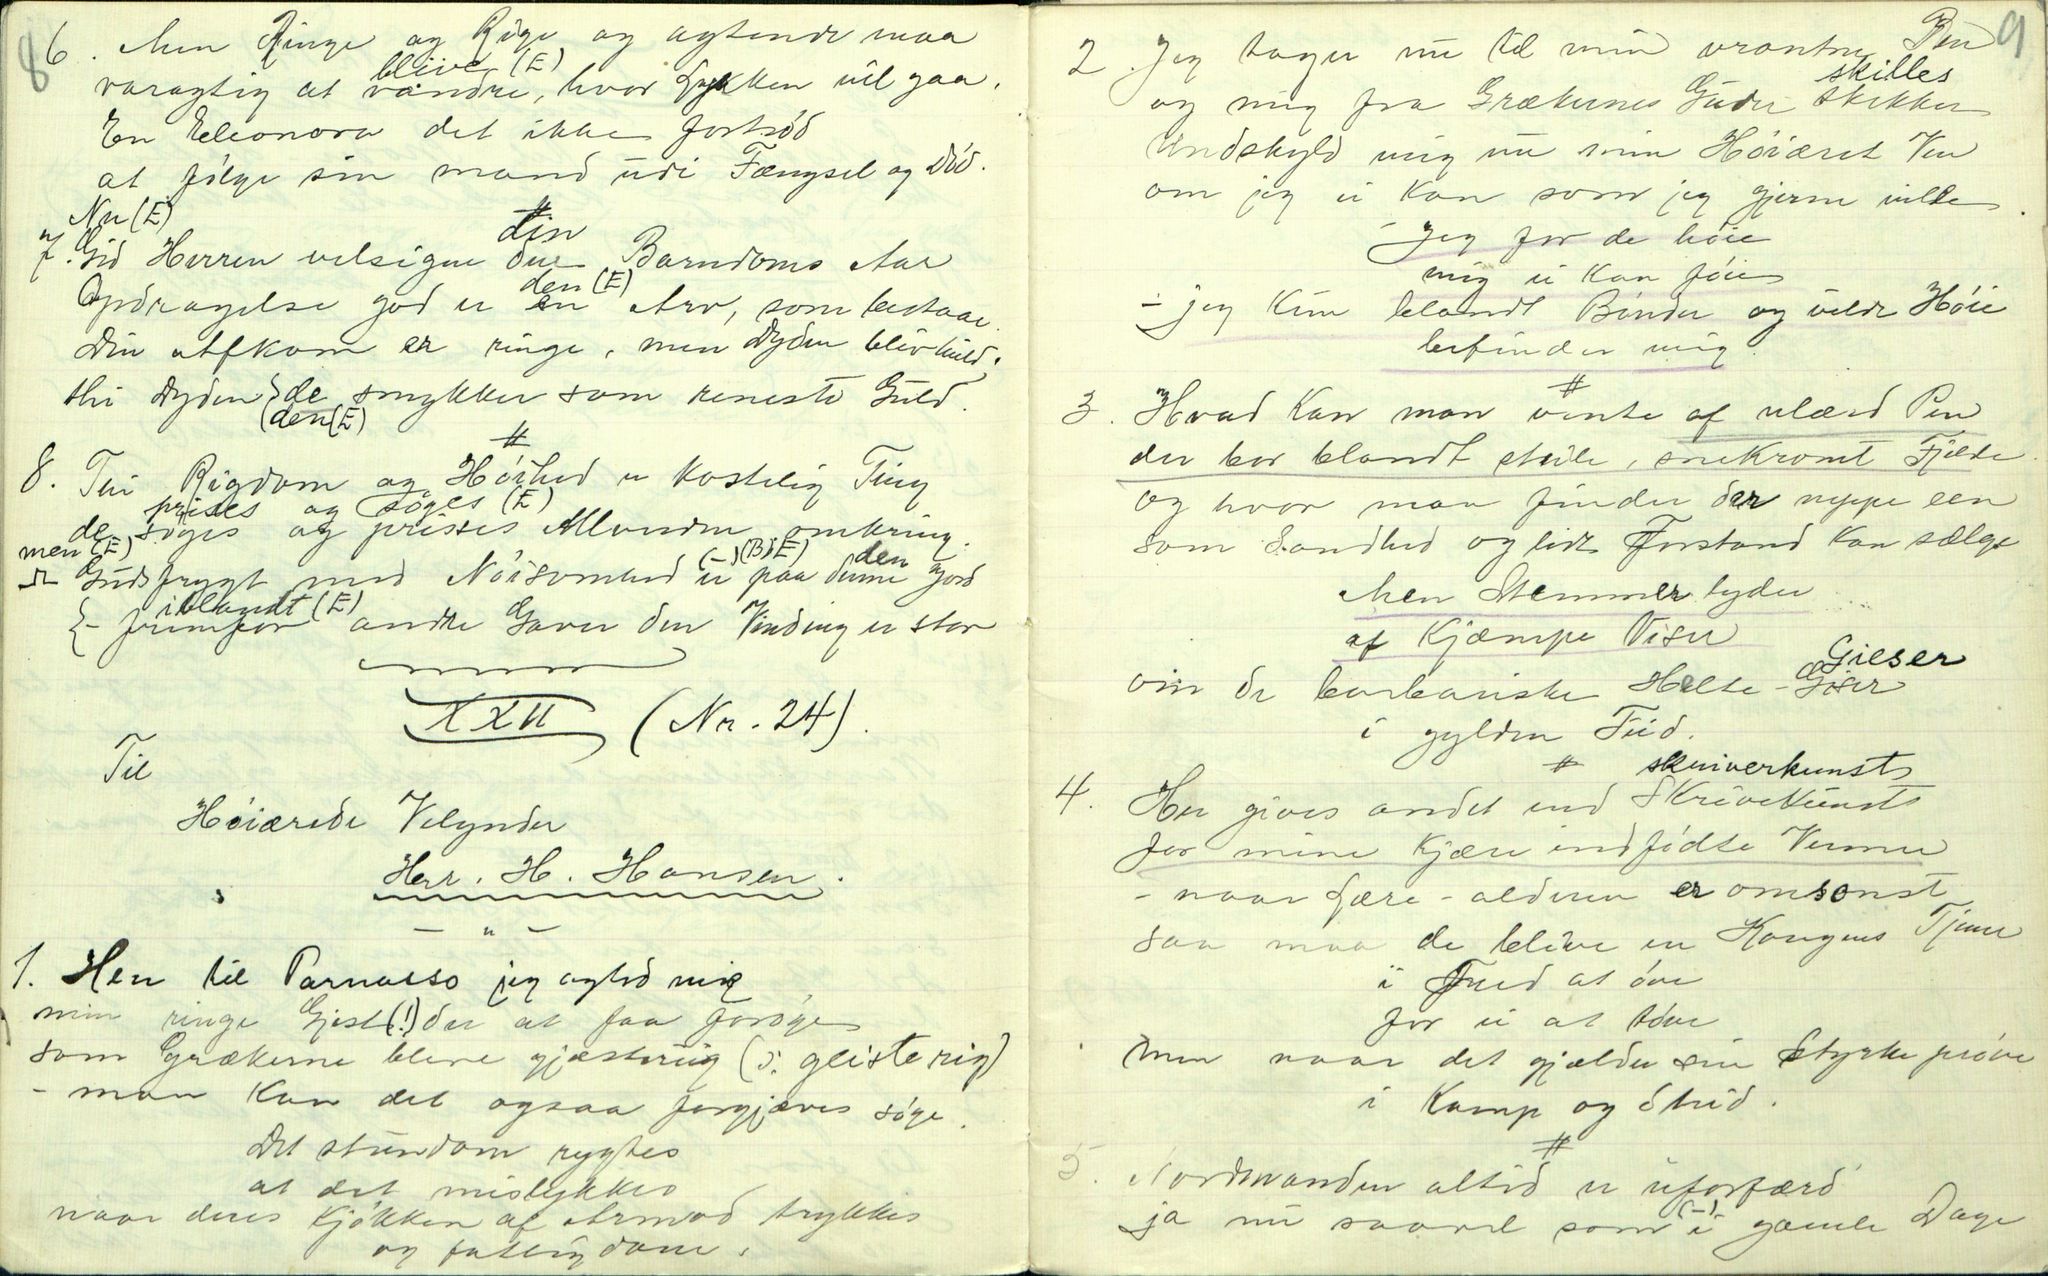 8
6. Men Ringe og Rige og agtende maa
blive (E)
varagtig at vandre, hvor Lykken vil gaa.
En Eleonora det ikke fortrød
at følge sin mand udi Fængsel og Død.
#
Nu (E) din
7. Gid Herren velsigne dine Barndoms Aar
den (E)
Opdragelse god er en Arv, som bestaar.
Din Afkom er ringe, men Dyden bliv huld,
thi Dyden de smykker som reneste Guld.
(den (E)
#
8. Rigdom og Høihed er kostelig Ting
prises og søges (E)
de søges og prises Allvenden omkring.
men (E) (-) (B) (E) den
Gudsfrygt med Nøisomhed er paa denne Jord
iblandt (E)
- fremfor andre Gaver den Vinding er stor
XXII (Nr. 24).
Til
Høiærede Velynder
Herr. H. Hansen.
- " -
1. Hen til Parnasso jeg agted mig
min ringe Gjest (!) der at faa forøge
som Grækerne bleve gjæsteriig (ɔ: geisterig)
- man kan det ogsaa forgjæves søge.
Det stundom rygtes
at det mislykkes
naar deres Kjøkken af Armod trykkes
og fattigdom.
9
2. Jeg tager nu til min vrantne Pen
skilles
og mig fra Grækernes Guder skikker
Undskyld mig nu min Høiæret Ven
om jeg ei kan som jeg gjerne vilde.
- Jeg for de høie
mig ei kan føie
- jeg kun blandt Bønder og vilde Høie
befinder mig.
#
3. Hvad kan man vente af ulærd Pen
der bor blandt steile, snekromt Fjelde.
og hvor man finder der neppe een
som Sandhed og lidt Forstand kan sælge
Men Stemmer lyder
af Kjæmpe Viser
Gieser
om de barbariske Helte-Gøser
i gylden Tiid.
#
skriverkunst
4. Her gives andet end Skrivekunst
for mine kjære indfødte Venner
- naar Lære-alderen er omsonst
saa maa de blive en Kongens Tjener
i Fred at øve
for ei at tøve
men naar det gjælder sin Styrke prøve
i Kamp og Strid.
#
5. Nordmanden altid er uforfærd
(-)
ja nu saavel som i gamle Dage